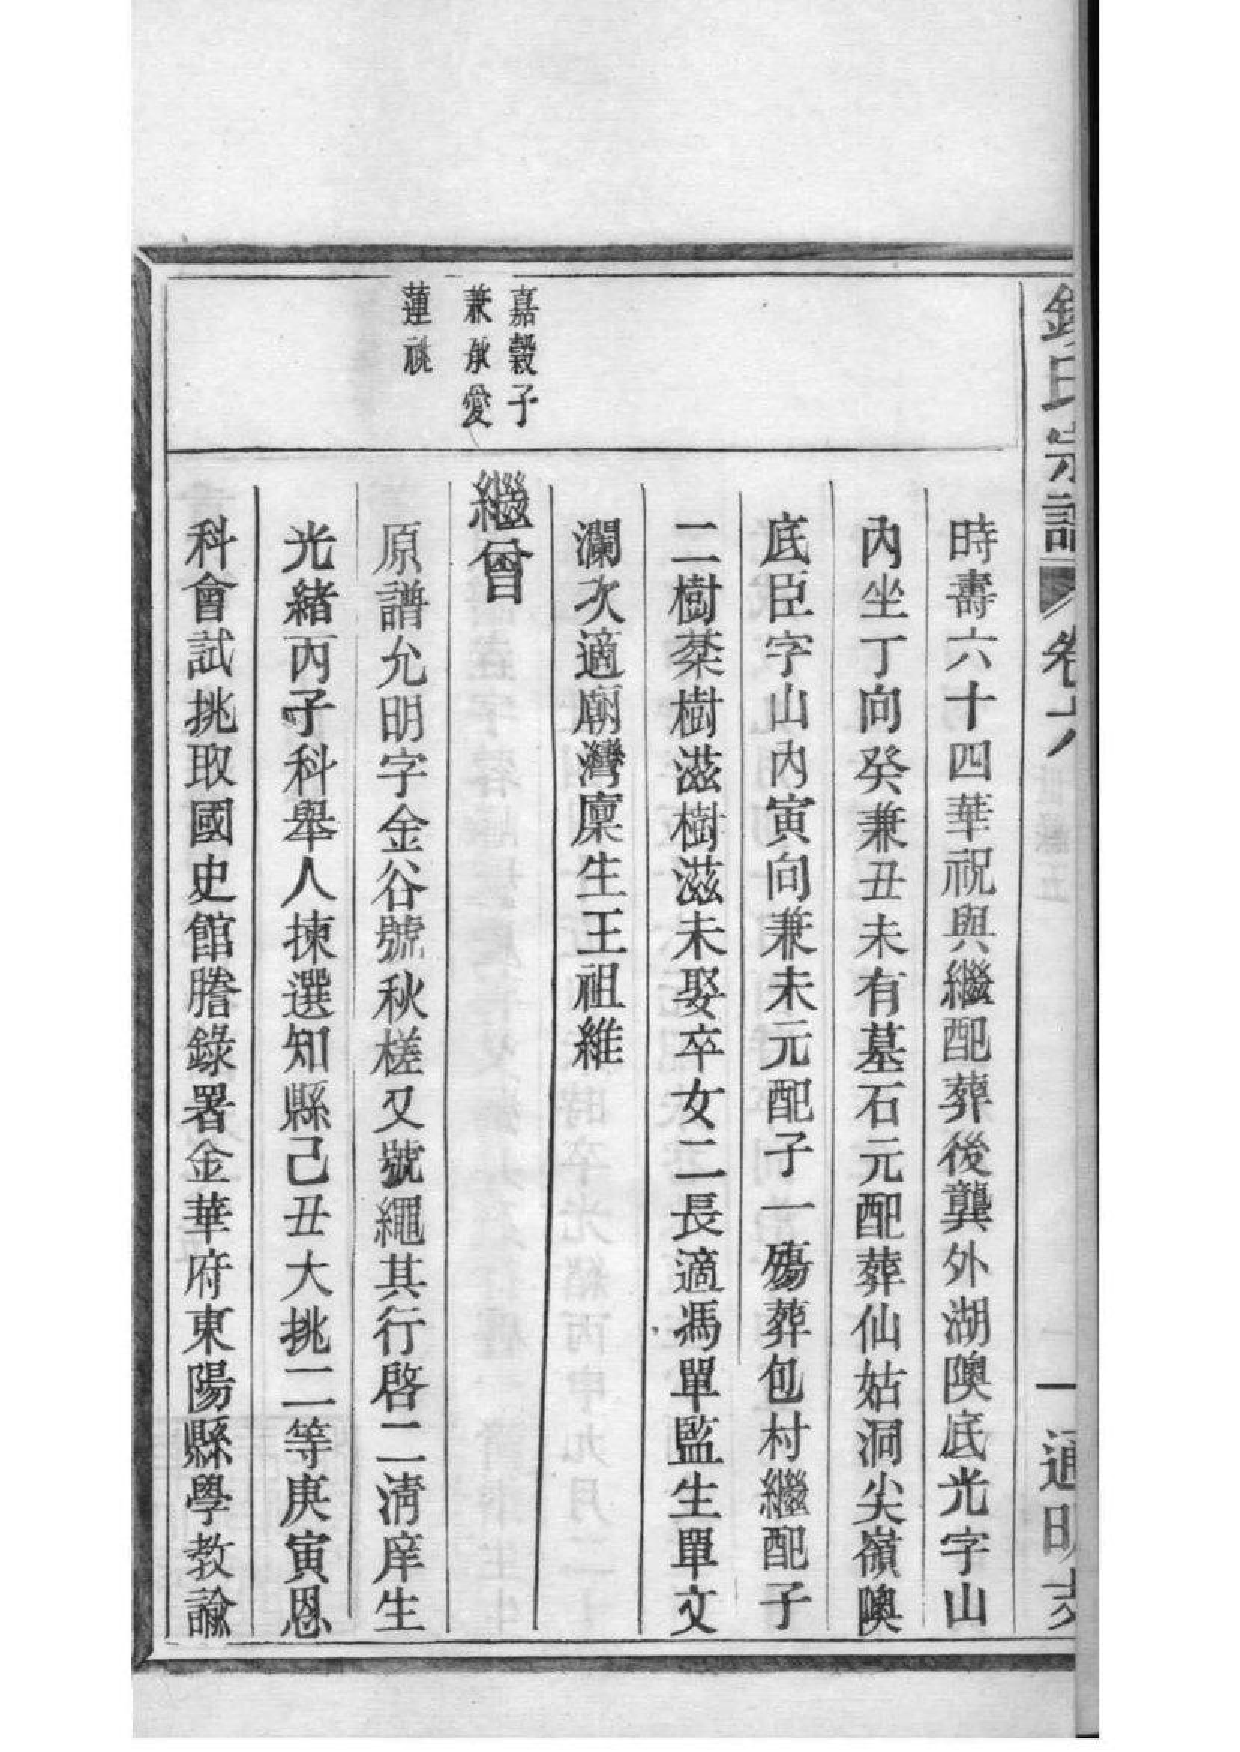 氏宗譜 卷十六 一 通明
時壽六十四華祝與繼配葬後龔外湖隩底光字山
內坐丁向癸兼丑未有墓石元配葬仙姑洞尖嶺隩
底臣字山內寅向兼未元配子一殤葬包村繼配子
二樹棻樹滋樹滋未娶卒女二長適馮單監生單文
瀾次適廟灣廩生王祖維
嘉穀子
兼承愛
蓮祧
繼曾
原譜允明字金谷號秋槎又號繩其行啓二淸庠生
光緒丙子科舉人揀選知縣己丑大挑二等庚寅恩
科會試挑取國史館謄錄署金華府東陽縣學教諭